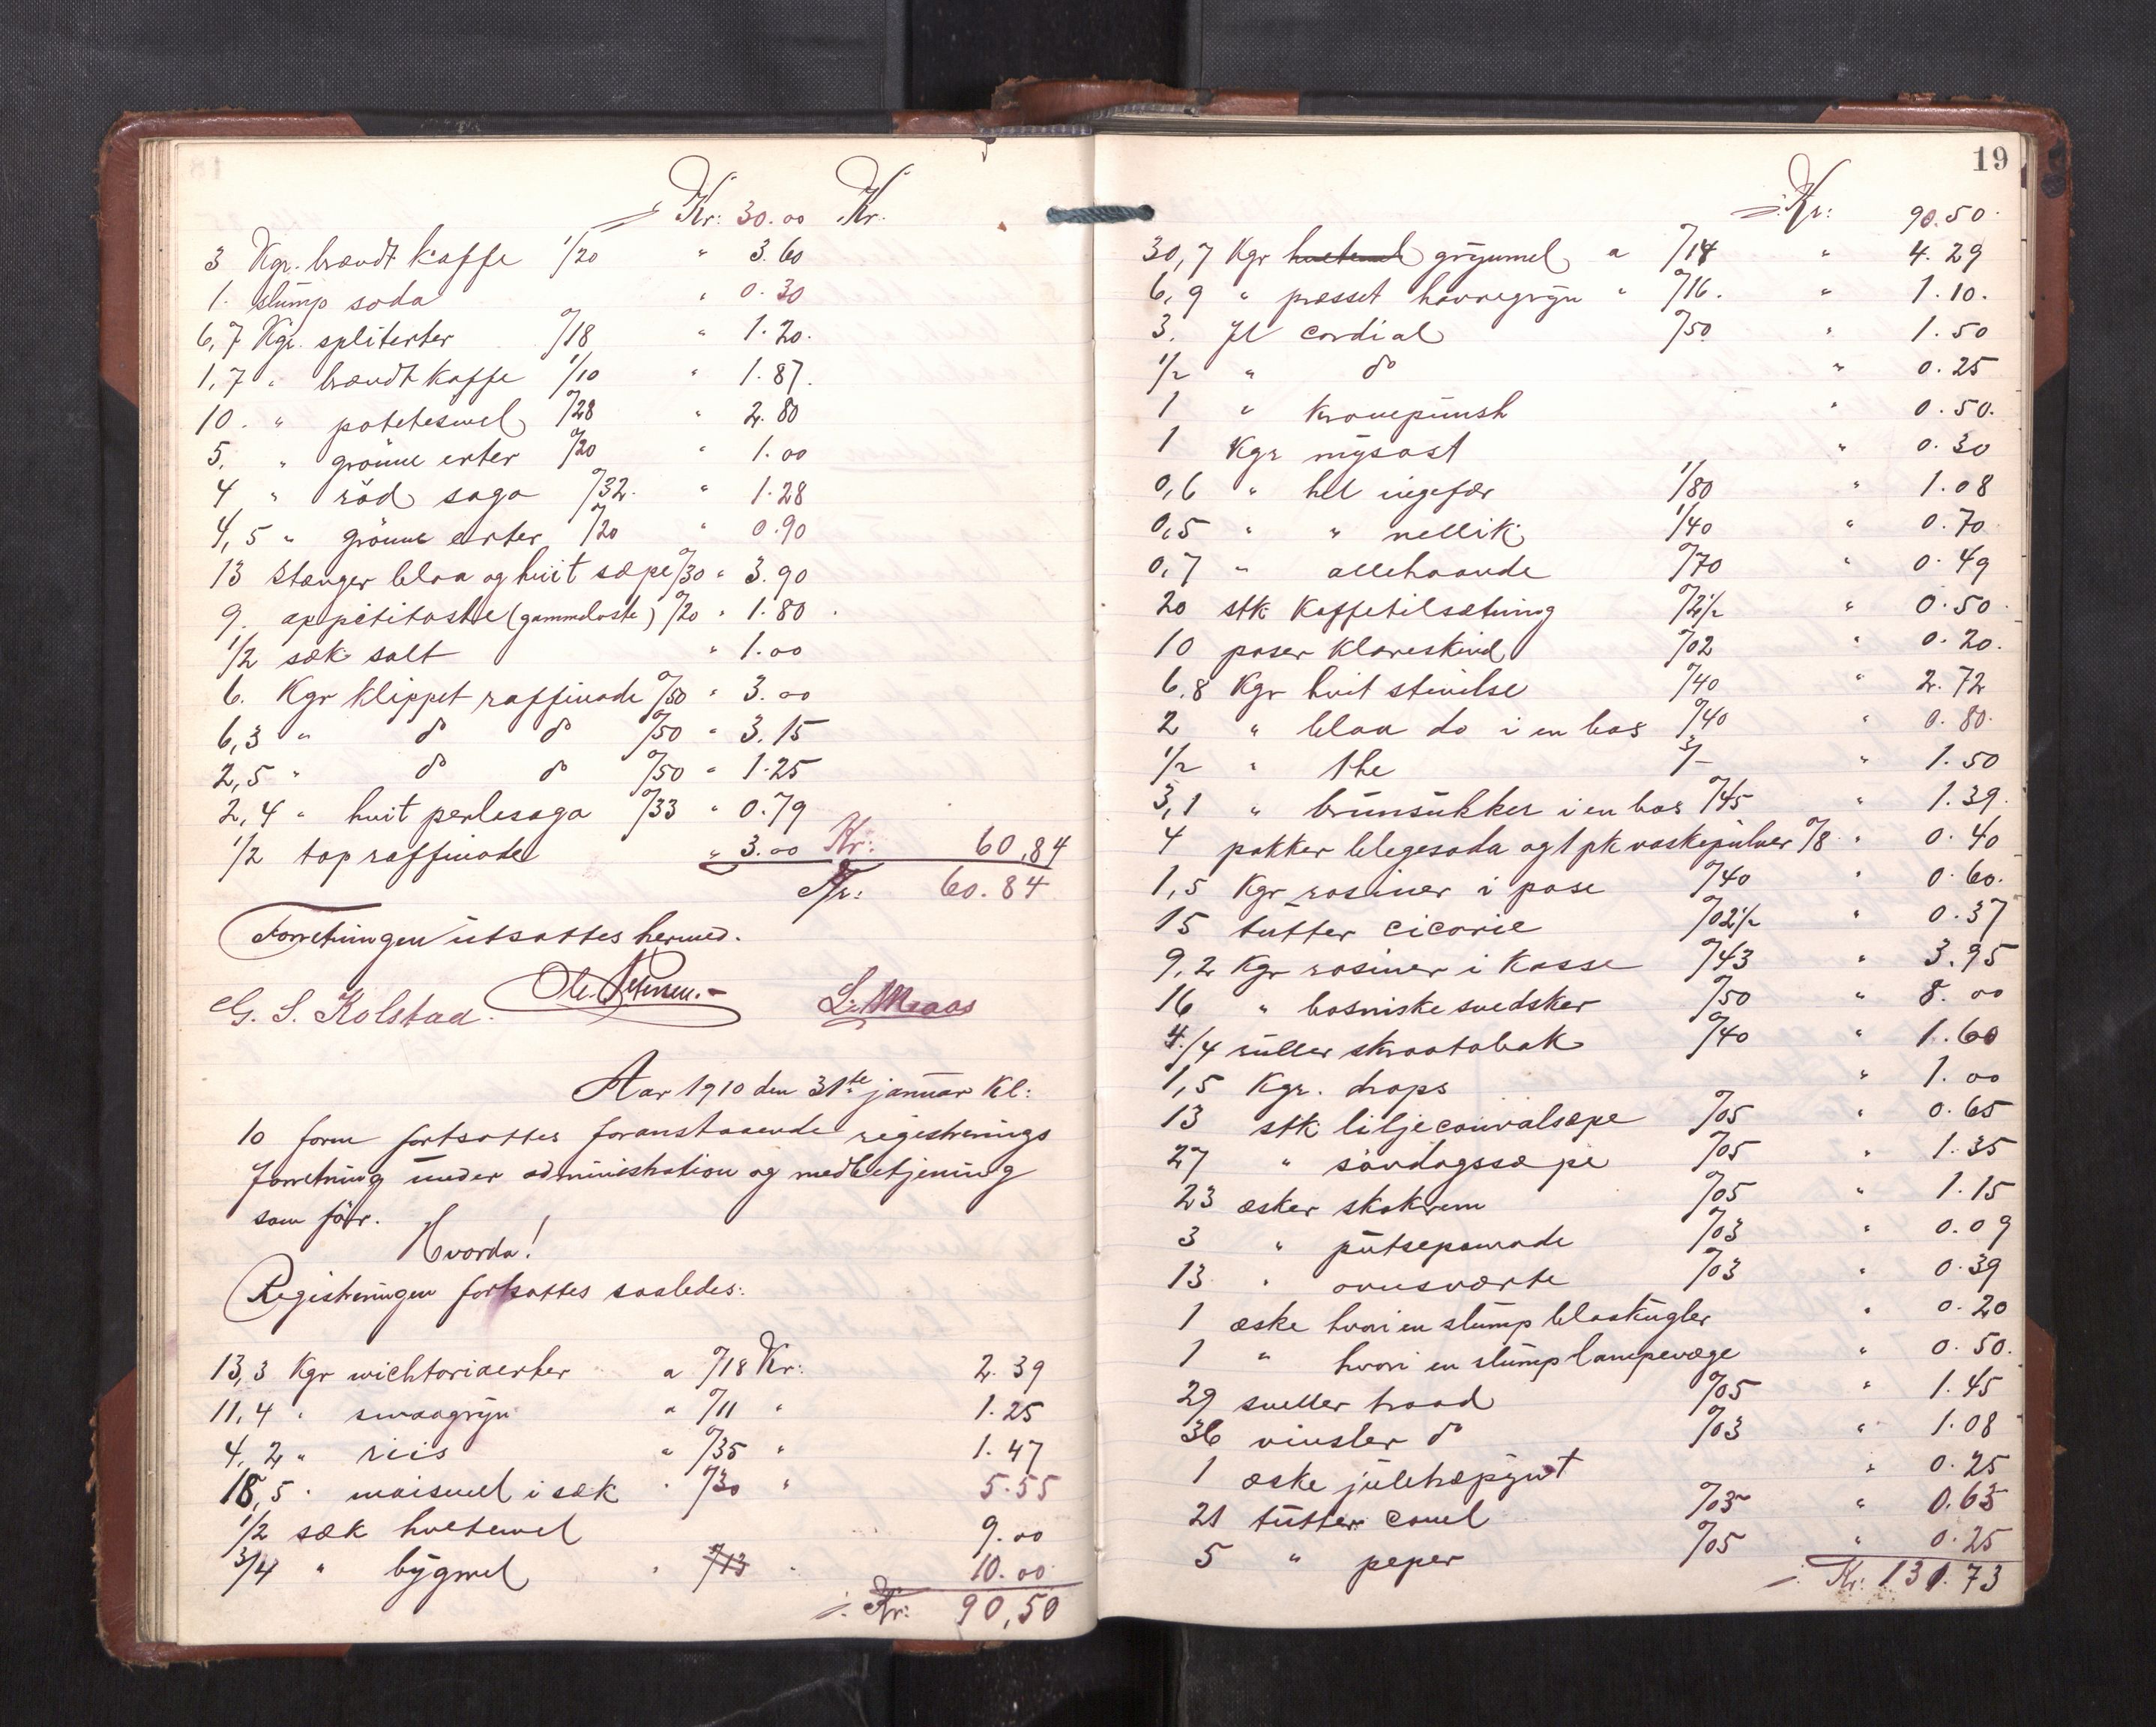 Kr: 30.00 Kr.
3 Kgr. brændt kaffe 1/20 " 3.60
1. slump soda " 0.30
6,7 Kgr. spliterter 0/18 " 1.20.
1,7 " brændt kaffe 1/10 " 1.87.
10. " potetesmel 0/28 " 2.80
5. " grønne erter 0/20 " 1.00
4 " rød sago 0/32. " 1.28
4,5 " grønne erter 0/20 " 0.90
13 stænger blaa og hvit sæpe 0/30 " 3.90
9. appetitoste (gammeloste) 0/20 " 1.80
1/2 sæk salt " 1.00
6. Kgr klippet raffinade 0/50 " 3.00
6,3 " do do 0/50 " 3.15
2,5 " do do 0/50 " 1.25
2,4 " hvit perlesago 0/33 " 0.79
1/2 top raffinade " 3.00 Kr: 60,84
Kr: 60.84
Forretningen utsattes hermed.
G. S. Kolstad. L. Maaos
Aar 1910 den 31te januar kl:
10 form fortsattes foranstaaende registrerings
forretning under administration og medbetjening
som før.
Hvorda!
Registreringen fortsattes saaledes:
13,3 Kgr wichtoriaerter a 0/18 Kr: 2.39
11,4 " smaagryn " 0/11 " 1.25
4,2 " riis " 0/35 " 1.47
18,5 " maismel i sæk " 0/30 " 5.55
1/2 sæk hvetemel 9.00
3/4 " bygmel " 0/13 " 10.00
Kr: 90,50
19
Kr: 90.50.
30,7 Kgr hvetemel grynmel a 0/14 " 4.29
6,9 " presset havregryn " 0/16. " 1.10.
3. fl cordial 0/50 " 1.50
1/2 " do " 0.25
1 " Kronepunsh " 0.50.
1 Kgr mysost " 0.30
0,6 " hel ingefær 1/80 " 1.08
0,5 " " nellik 1/40 " 0.70
0,7 " allehaande 0/70 " 0.49
20 stk Kaffetilsætning 0/2 1/2 " 0.50.
10 poser klareskind 0/02 " 0.20.
6.8 Kgr hvit stivilse 0/40 " 2.72
2 " blaa do i en bos 0/40 " 0.80.
1/2 " the 3/- " 1.50
3,1 " brunsukker i en bos 0/45 " 1.39.
4 pakker blegesoda og 1 pk vaskepulver 0/8 " 0.40
1,5 Kgr rosiner i pose 0/40 " 0.60.
15 tutter cicorie 0/02 1/2 " 0.37
9,2 Kgr rosiner i Kasse 0/43 " 3.95
16 " bosniske svedsker 0/50 " 8.00
4/4 ruller skraatobak 0/40 " 1.60
1,5 Kgr. drops " 1.00
13 stk liljeconvalsæpe 0/05 " 0.65
27 " søndagssæpe 0/05 " 1.35
23 æsker skokrem 0/05 " 1.15
3 " putsepomade 0/03 " 0.09
13 " ovnsværte 0/03 " 0.39
1 æske hvori en slump blaakugler " 0.20
1 " hvori en slump lampevæge " 0.50.
29 sneller traad 0/05 " 1.45
36 vinsler do 0/03 " 1.08
1 æske juletræpynt " 0.25
21 tutter canel 0/03 " 0.63
5 " peper 0/05 " 0.25
Kr: 131.73